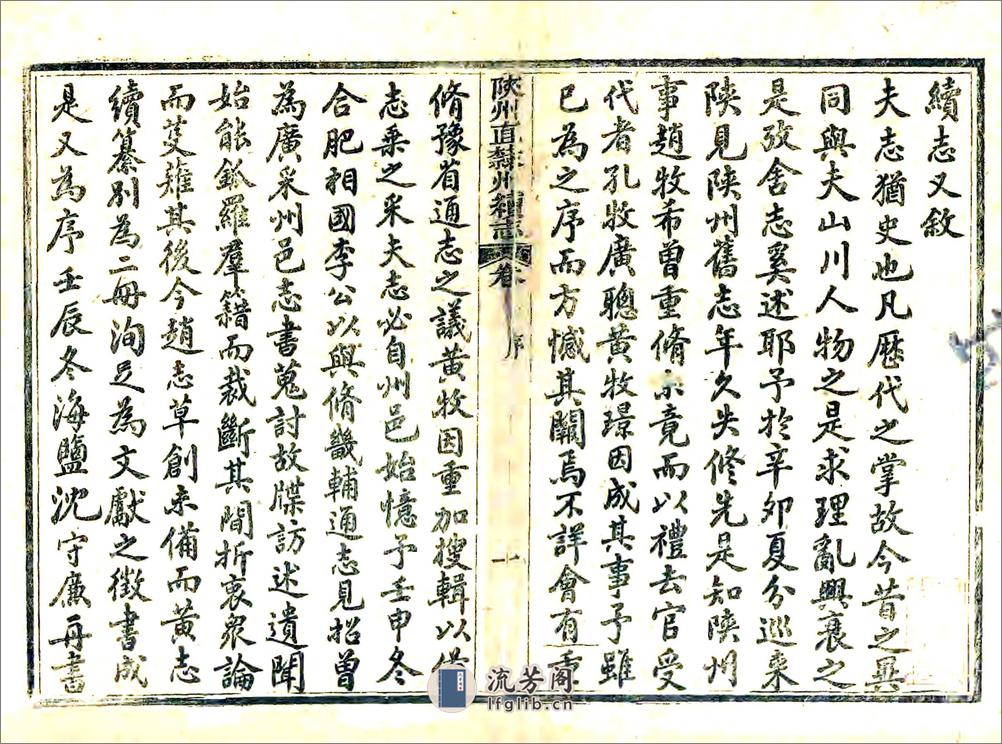 續志又敘
夫志猶史也凡歷代之掌故今昔之異
同與夫山川人物之是求理亂興衰之
是攷舍志奚述耶予於辛卯夏分巡來
陝見陝州舊志年久失修先是知陝州
事趙牧希曾重脩未竟而以禮去官受
代者孔牧廣聰黃牧璟因成其事予雖
已為之序而方憾其闕焉不詳會有重
陝州直隸州續志 卷 序 十
脩豫省通志之議黃牧因重加搜輯以備
志乘之采夫志必自州邑始憶予壬申冬
合肥相國李公以與脩畿輔通志見招曾
為廣采州邑志書蒐討故牒訪述遺聞
始能鉥羅羣籍而裁斷其間折衷眾論
而芟薙其後今趙志草創未備而黃志
續纂別為二冊洵足為文獻之徵書成
是又為序壬辰冬海鹽沈守廉再書
流芳阁
lfglib.cn